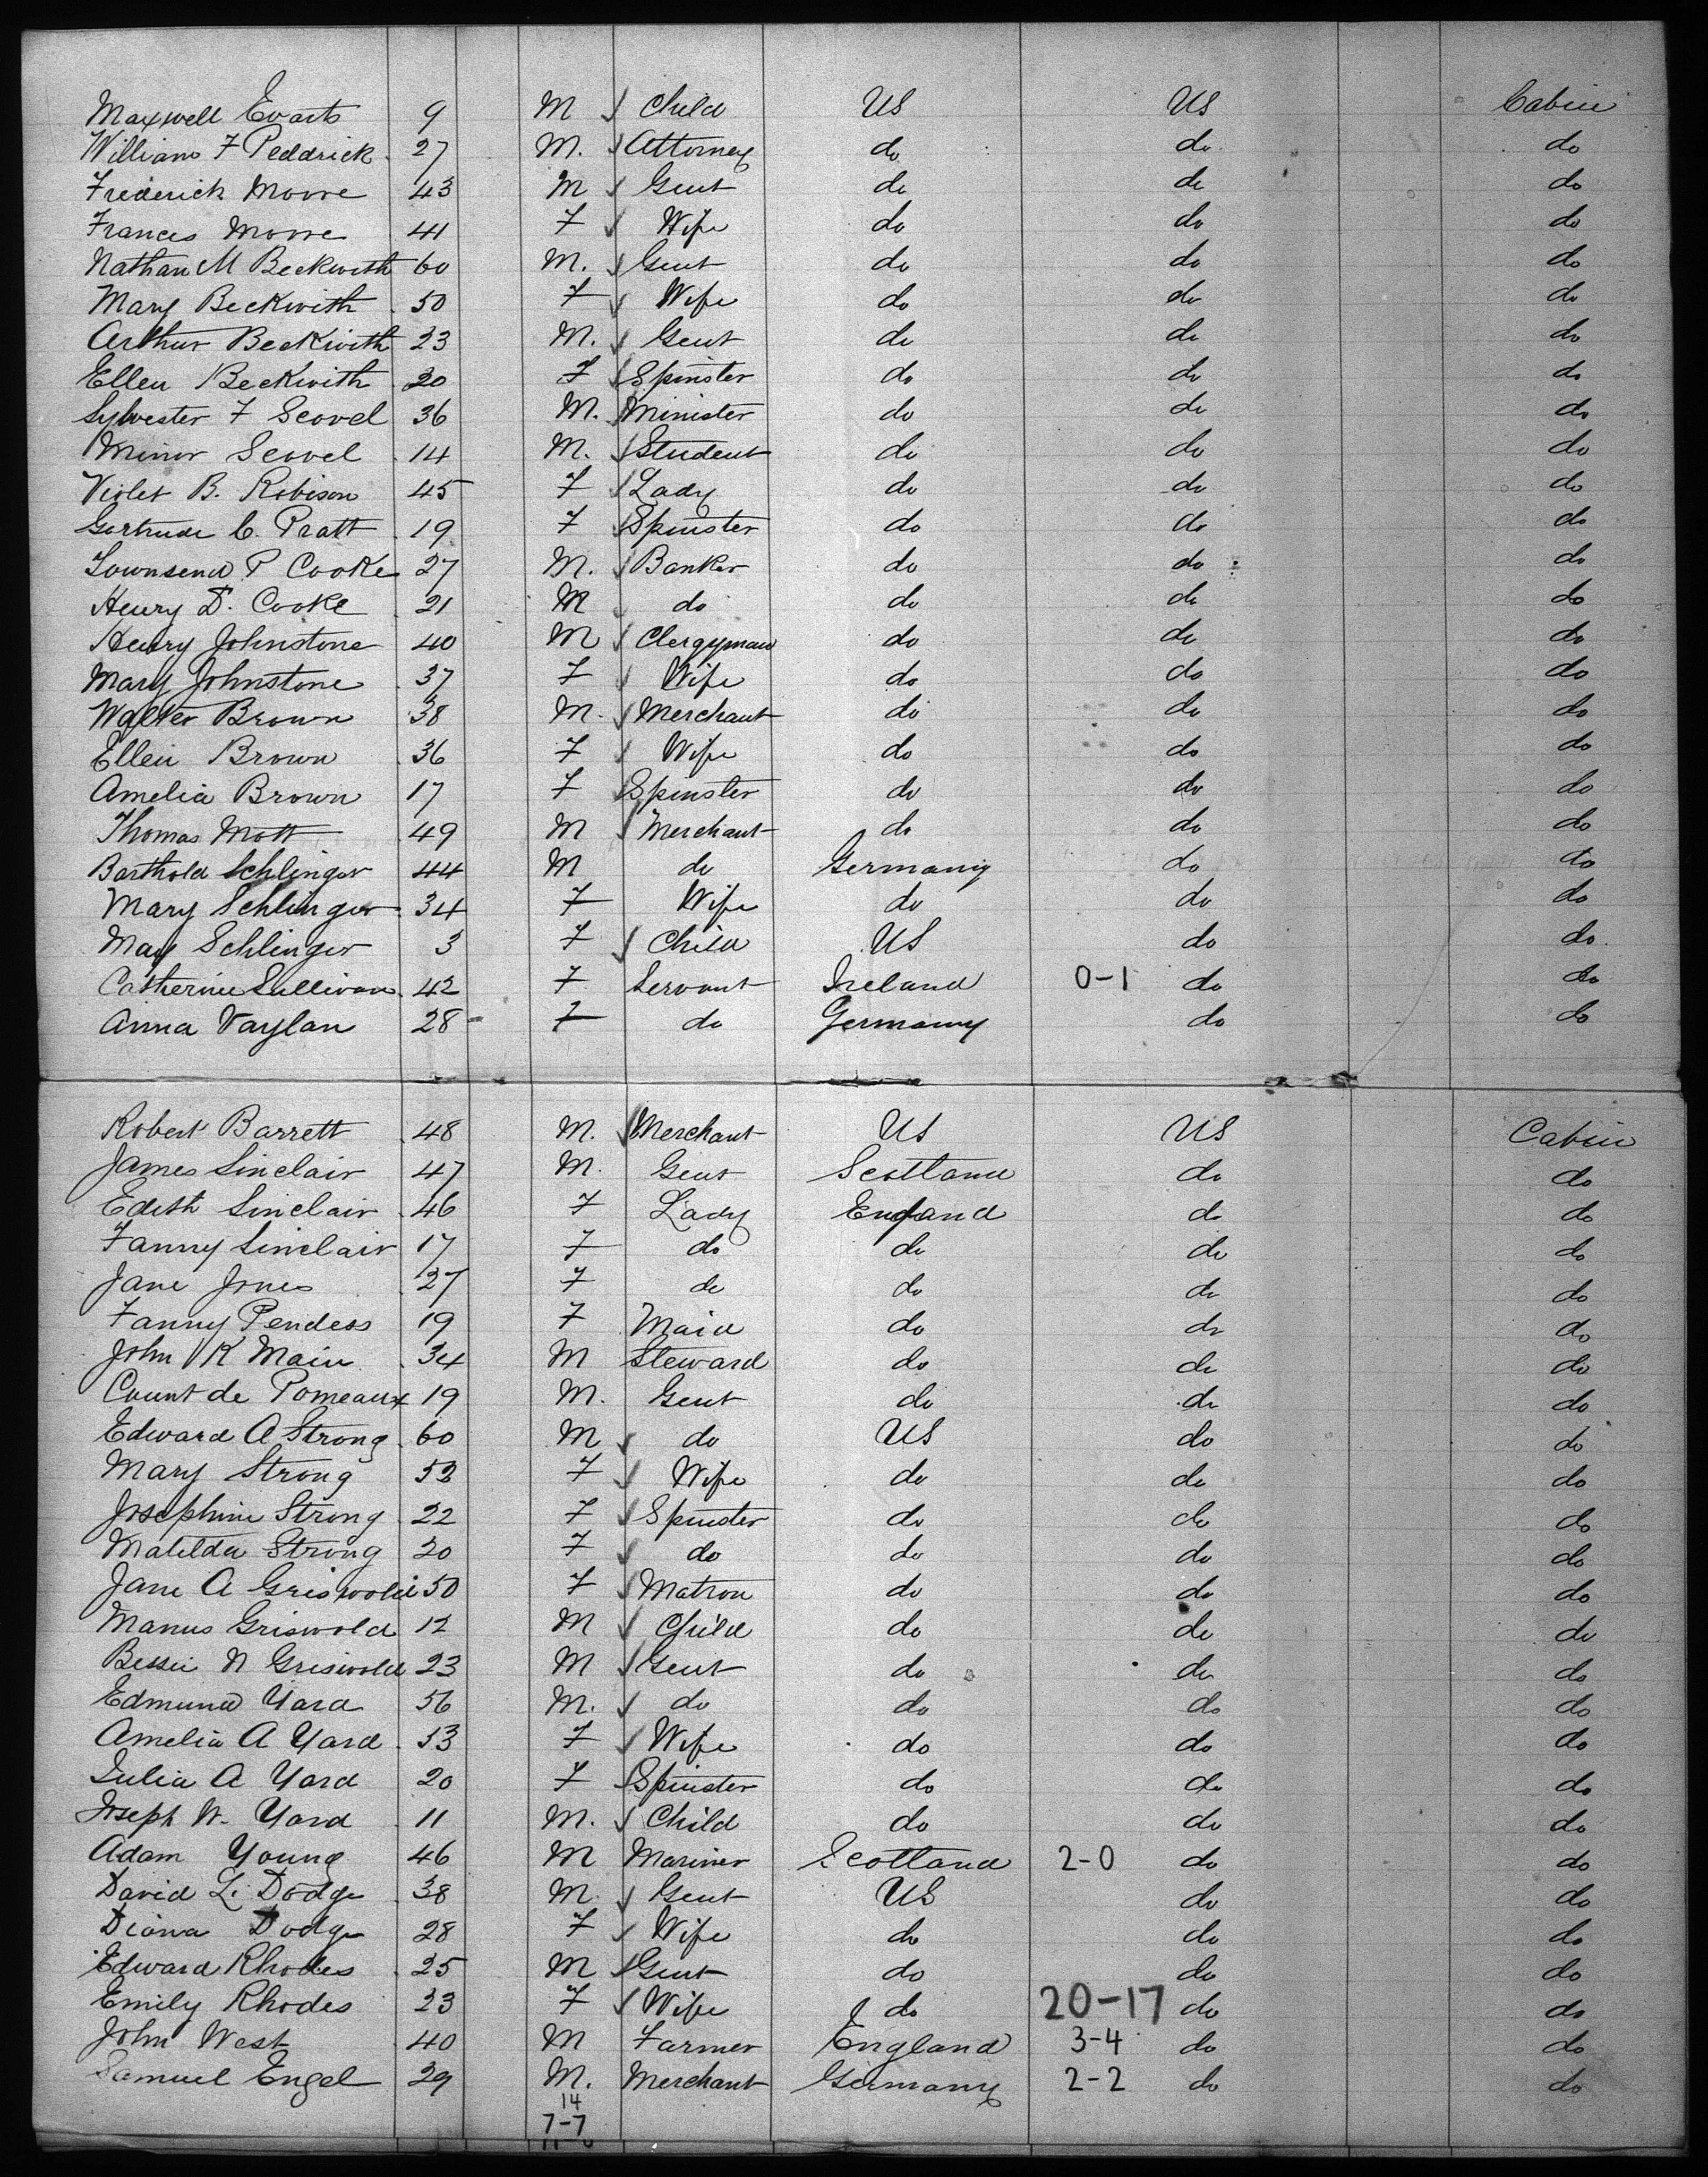 Maxwell Evarts 9 M Child US US Cabin
William F Peddrick 27 M. Attorney do do do
Frederick Moore 43 M Gent do do do
Frances Moore 41 F Wife do do do
Nathan M Beckwith 60 M. Gent do do do
Mary Beckwith 50 F Wife do do do
Arthur Beckwith 23 M. Gent do do do
Ellen Beckwith 20 F Spinster do do do
Sylvester F Scovel 36 M. Minister do do do
Minor Scovel 14 M. Student do do do
Violet B. Robison 45 F Lady do do do
Gertrude C. Pratt 19 F Spinster do do do
Townsend P Cooke 27 M. Banker do do do
Henry D. Cooke 21 M do do do do
Henry Johnstone 40 M Clergyman do do do
Mary Johnstone 37 F Wife do do do
Walter Brown 38 M. Merchant do do do
Ellen Brown 36 F Wife do do do
Amelia Brown 17 F Spinster do do do
Thomas Mott 49 M Merchant do do do
Barthold Schlinger 44 M do Germany do do
Mary Schlinger 34 F Wife do do do
May Schlinger 3 F Child US do do
Catherine Sullivan 42 F Servant Ireland 0-1 do do
Anna Vaylan 28 F do Germany do do
Robert Barrett 48 M. Merchant US US Cabin
James Sinclair 47 M. Gent Scotland do do
Edith Sinclair 46 F Lady England do do
Fanny Sinclair 17 F do do do do
Jane Jones 27 F do do do do
Fanny Pendess 19 F Maid do do do
John K Main 34 M Steward do do do
Count de Pomeaux 19 M. Gent do do do
Edward A Strong 60 M do US do do
Mary Strong 53 F Wife do do do
Josephine Strong 22 F Spinster do do do
Matilda Strong 20 F do do do do
Jane A Griswold 50 F Matron do do do
Manus Griswold 12 M Child do do do
Bessie N Griswold 23 M Gent do do do
Edmund Yard 56 M. do do do do
Amelia A Yard 53 F Wife do do do
Julia A Yard 20 F Spinster do do do
Joseph W. Yard 11 M. Child do do do
Adam Young 46 M Mariner Scotland 2-0 do do
David L. Dodge 38 M. Gent US do do
Diana Dodge 28 F Wife do do do
Edward Rhodes 25 M Gent do do do
Emily Rhodes 23 F Wife do 20-17 do do
John West 40 M Farmer England 3-4 do do
Samuel Engel 29 M. Merchant Germany 2-2 do do
14
7-7